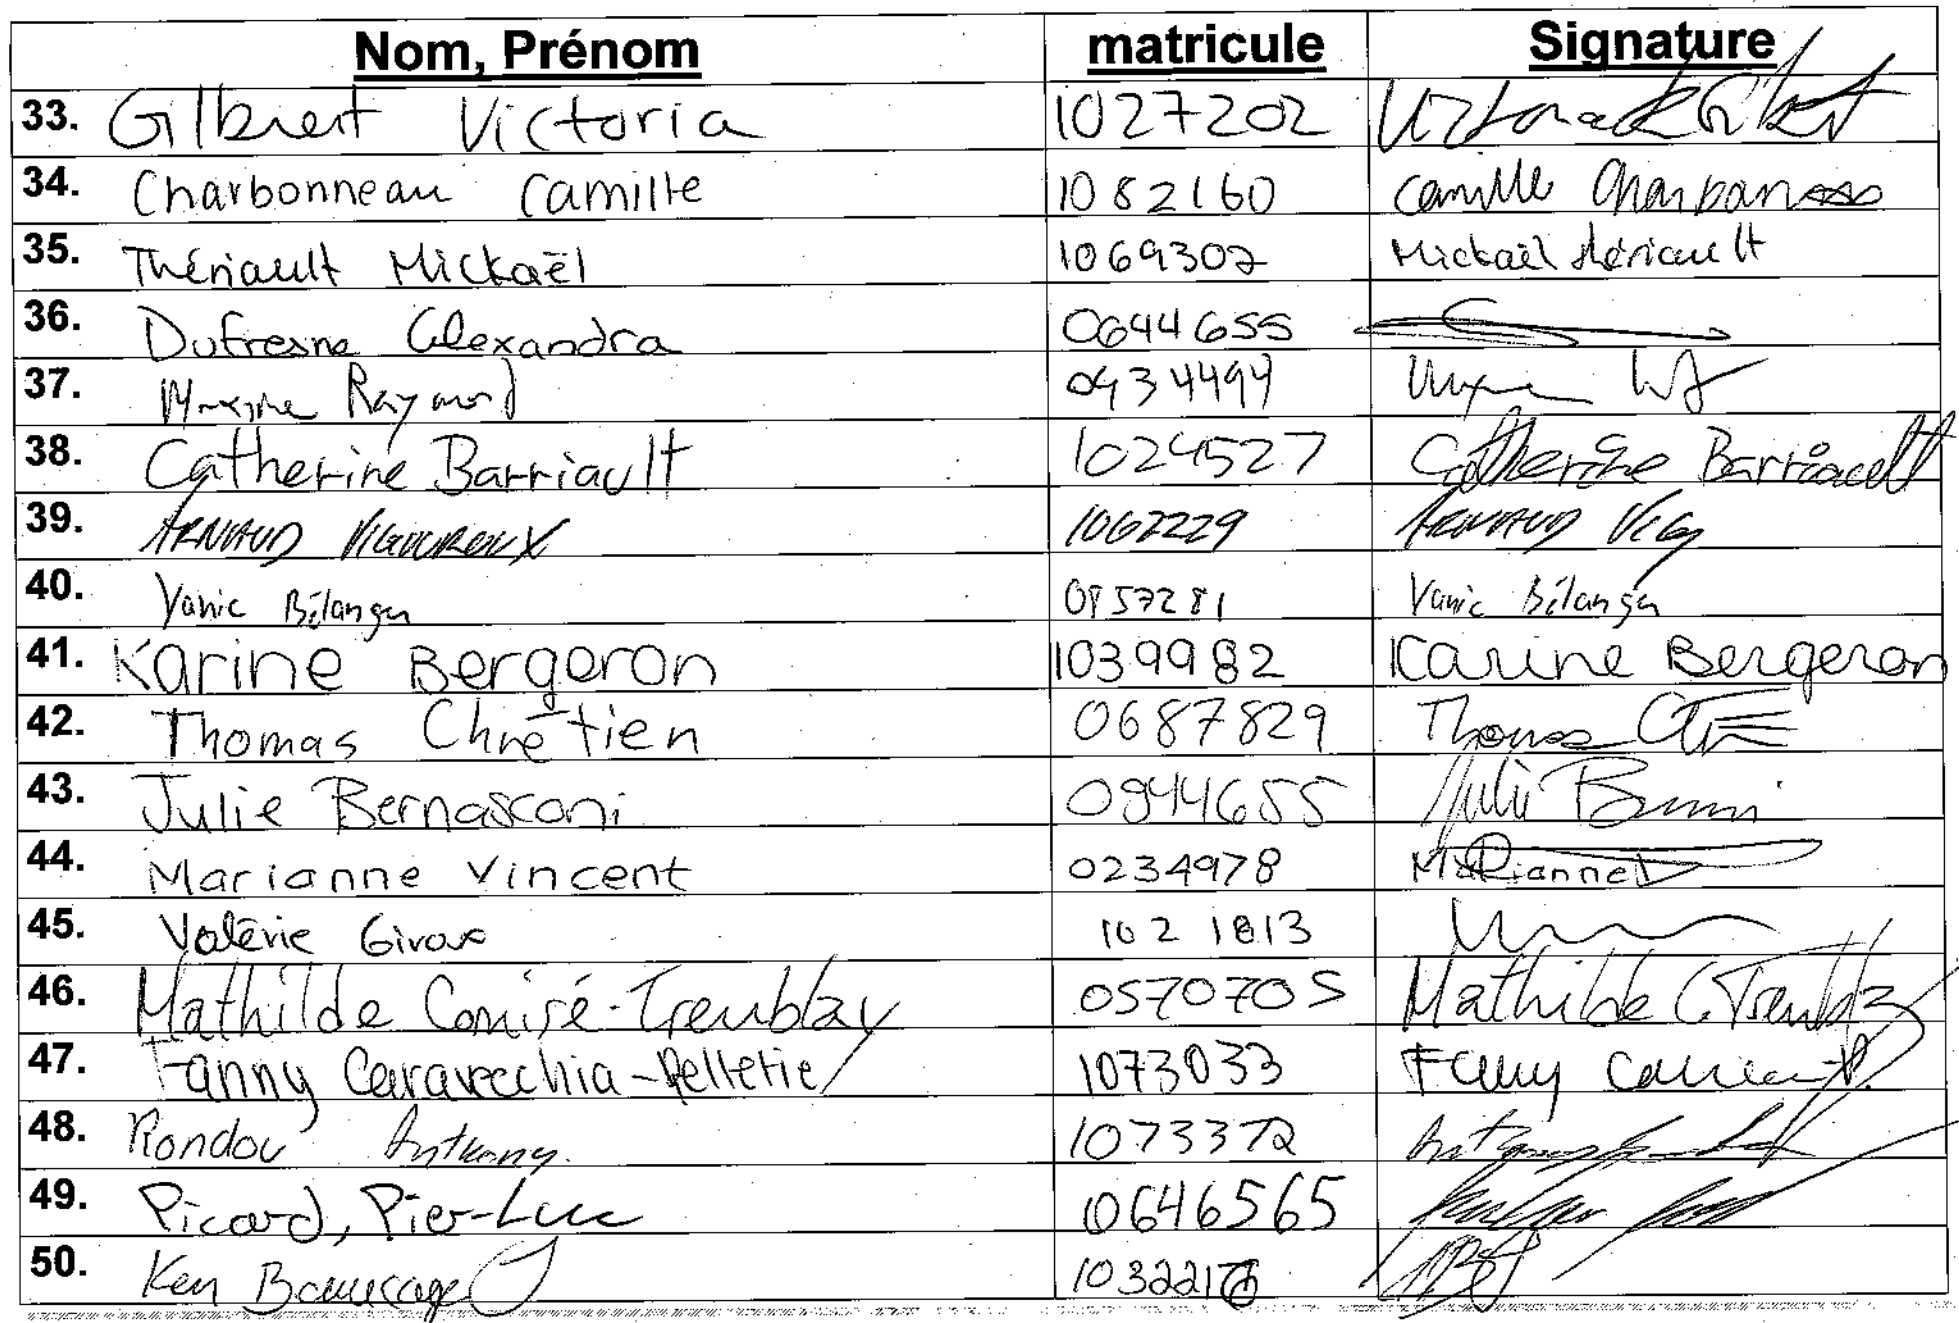 Nom, Prénom matricule Signature
33. Gilbert Victoria 1027202
34. Charbonneau Camille 1082160 Camille Charbonneau
35. Thériault Mickaël 1069307 Mickaël thériault
36. Dufresne Alexandra 0644655
37. Maxime Raymond 0934494
38. Catherine Barriault 1024527 Catherine Barriault
39. ARNAUD VIGOUROUX 1067229 ARNAUD VIG
40. Yanic Bélanger 0857281 Yanic Bélanger
41. Karine Bergeron 1039982 Karine Bergeron
42. Thomas Chrétien 0687829 Thomas
43. Julie Bernasconi 0944655 Julie
44. Marianne Vincent 0234978 Marianne
45. Valérie Giroux 1021813
46. Mathilde Comiré-Tremblay 0570705 Mathilde C. Tremblay
47. Fanny Caravecchia-Pelletier 1073033 Fanny
48. Rondou Anthony 1073372
49. Picard, Pier-Luc 10646565
50. Ken Beaucage